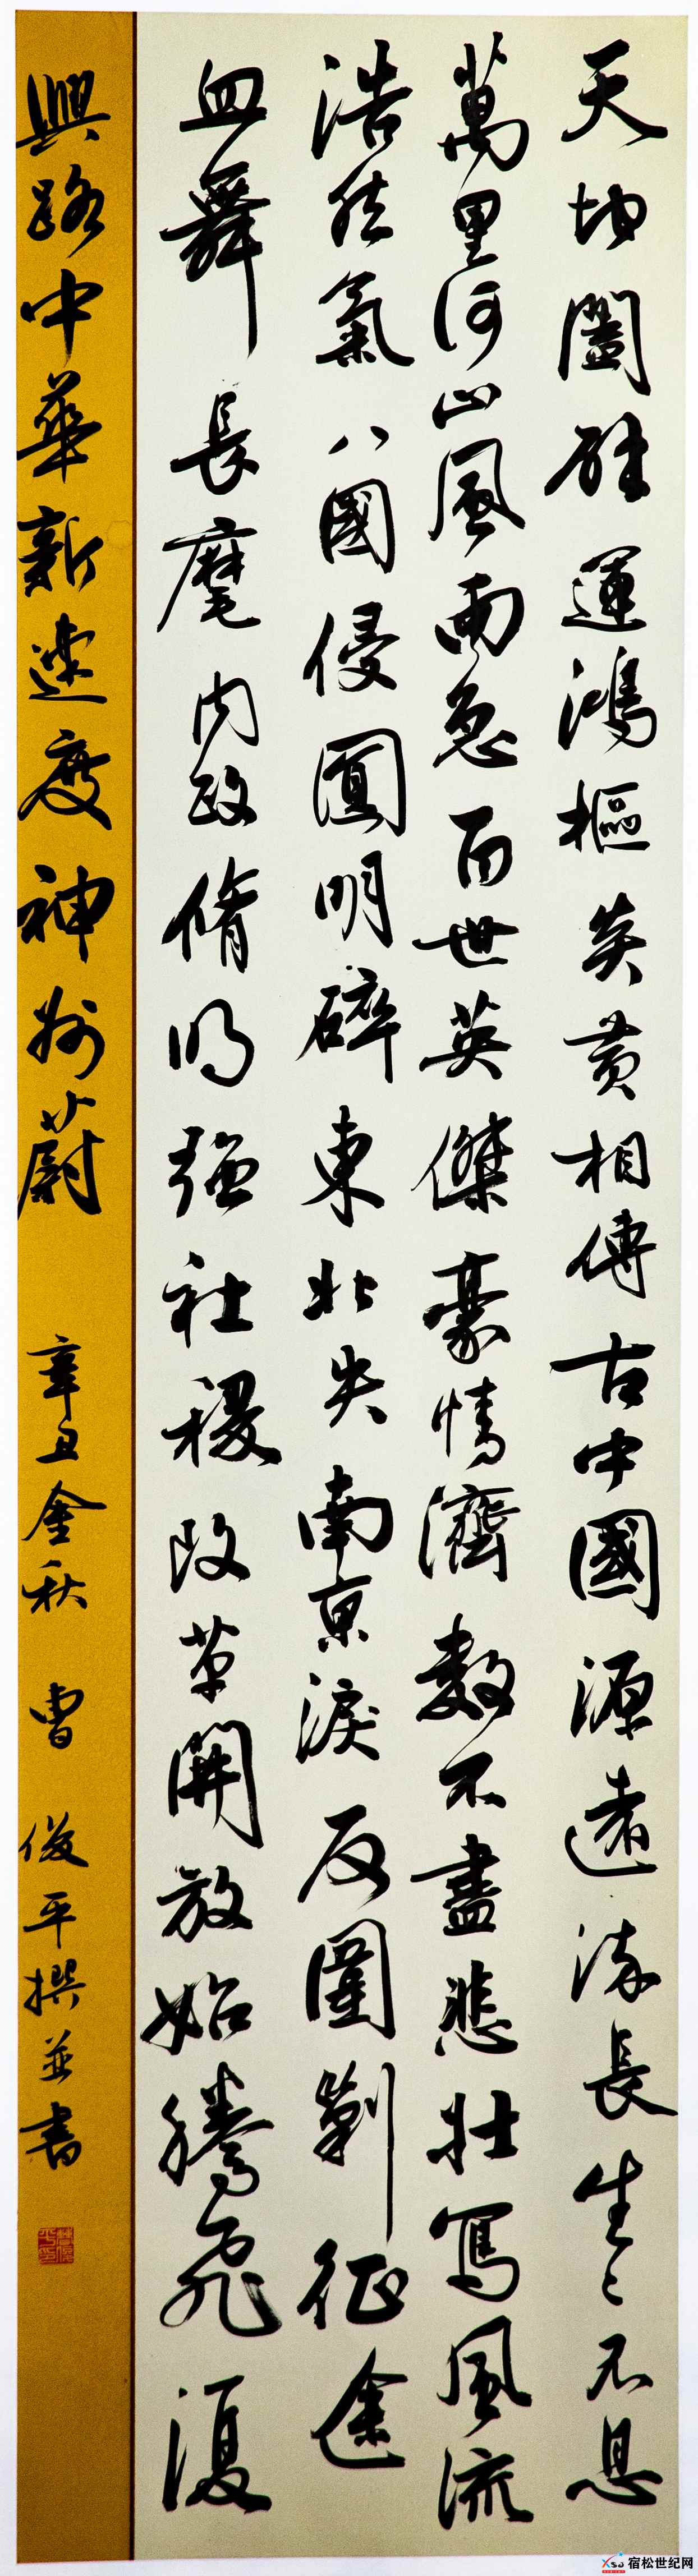 天地闔辟運鴻樞炎黃相傳古中國源遠流長生生不息
萬里河山風雨急百世英傑豪情濟數不盡悲壯寫風流
浩然氣八國侵圓明碎東北失南京淚反圍剿征途
血舞長麾內政脩明強社稷改革開放始騰飛復
興路中華新速度神州蔚
辛丑金秋 曹俊平撰並書
宿松世纪网